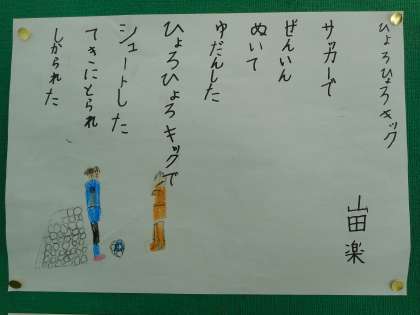 ひょろひょろキック
山田楽
サッカーで
ぜんいん
ぬいて
ゆだんした
ひょろひょろキックで
シュートした
てきにとられ
しかられた